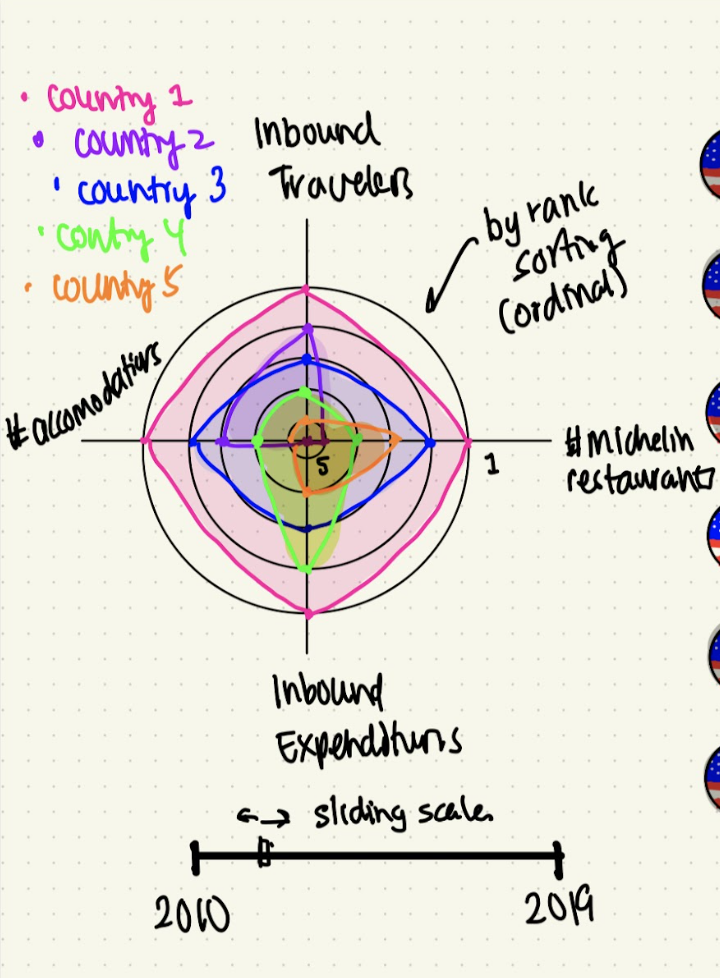 • Country 1
• Country 2
• country 3
• contry 4
• country 5
Inbound
Travelers
by rank
sorting
(ordinal)
#accomodations
#michelin
restaurants
5
1
Inbound
Expenditures
← → sliding scale
2010
2019